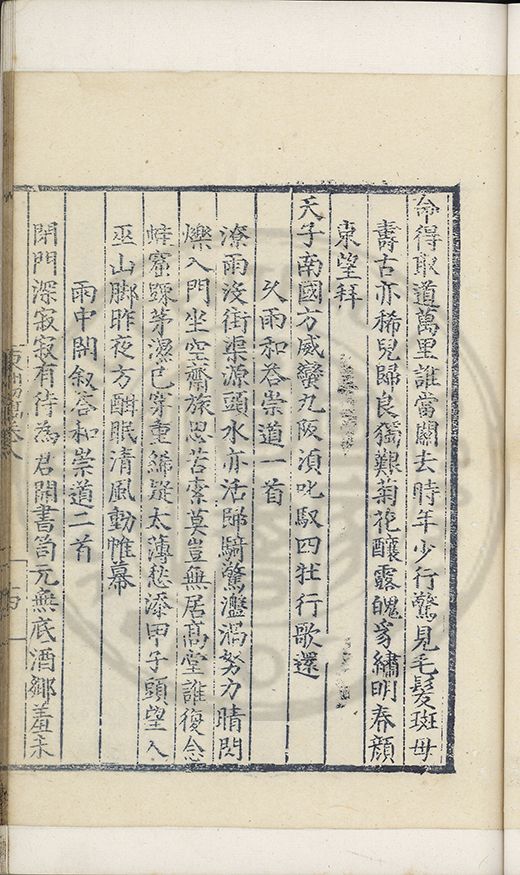 命得取道萬里誰當關去時年少行驚見毛髮斑母
壽古亦稀兒歸良獨艱菊花釀露醜豸繡明春顏
東望拜
天子南國方威蠻九阪湏叱馭四牡行歌還
久雨和荅崇道一首
潦雨沒街渠源頭水亦活歸騎驚灩溈努力晴閃
爍入門坐空齋旅思苦索莫豈無居高堂誰復念
蜂窠踈茅濕已穿重絺疑太薄愁添甲子頭望入
巫山脚昨夜方酣眠清風動帷幕
雨中閣叙荅和崇道二首
閉門深寂寂有待為君開書笥元無底酒鄉羞未